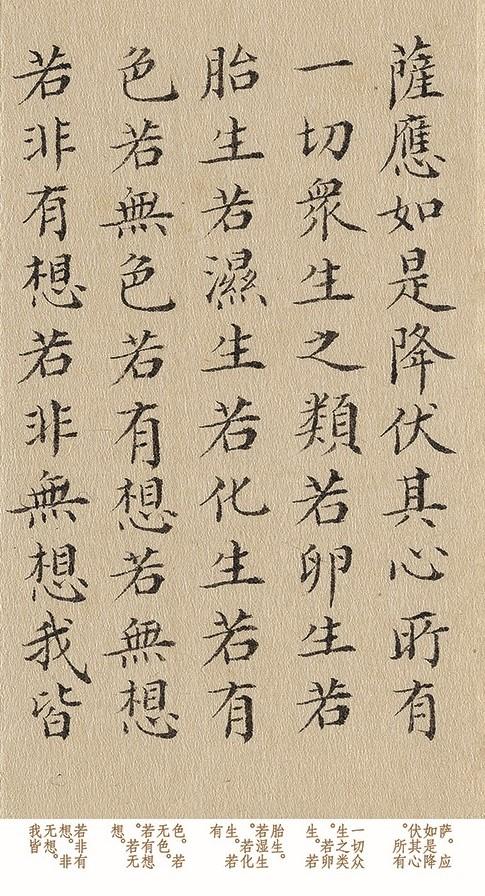 薩應如是降伏其心所有
一切衆生之類若卵生若
胎生若濕生若化生若有
色若無色若有想若無想
若非有想若非無想我皆
萨。应
如是降
伏其心
。所有
一切众
生之类
。若卵
生。若
胎生。
若湿生
。若化
生。若
有
色。若
无色。
若有想
。若无
想。
若非有
想。非
无想。
我皆